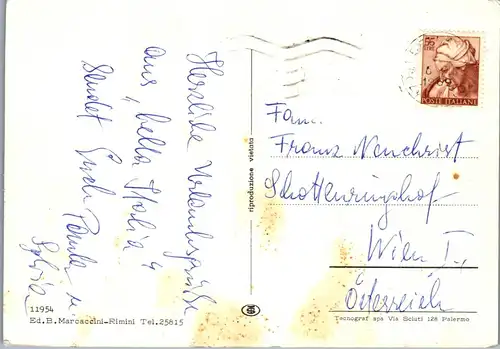 Herzliche Urlaubsgrüße
aus "bella Italia"
sendet Euch Paula u.
Sylvia
11954
Ed. B. Marcaccini-Rimini Tel. 25815
riproduzione vietata
55
LIRE
POSTE ITALIANE
Fam.
Franz Neuchrist
Schottenringhof
Wien I.,
Österreich
Tecnograf spa Via Sciuti 128 Palermo